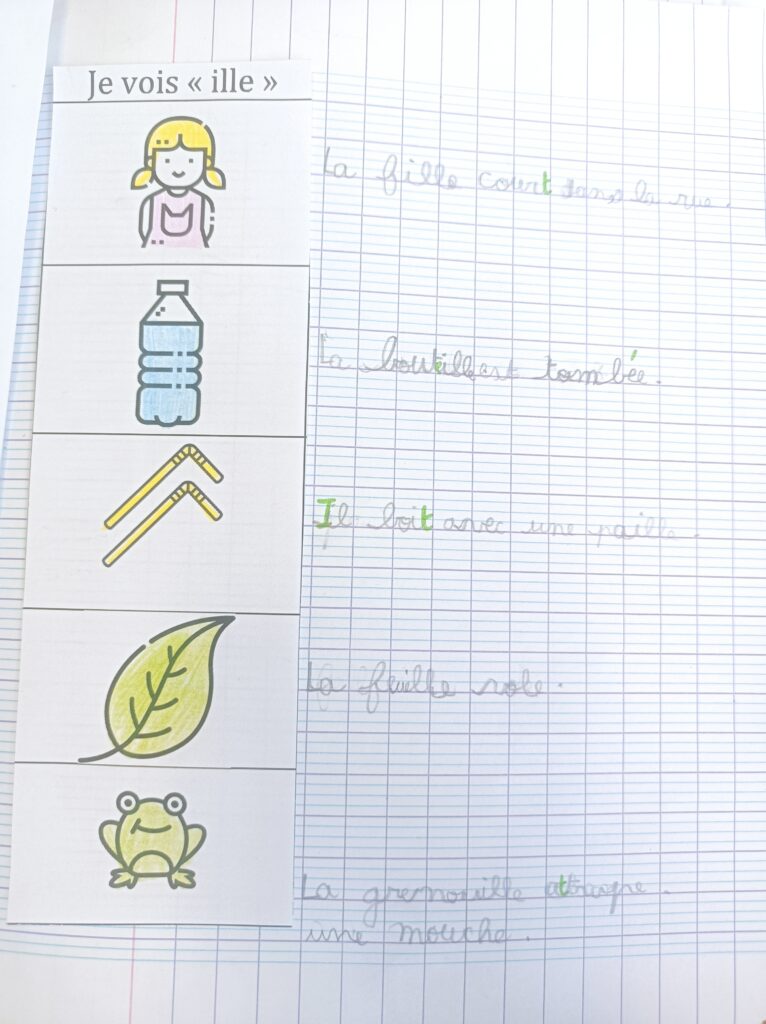 Je vois « ille »
La fille court dans la rue.
La bouteille est tombée.
Il boit avec une paille.
La feuille vole.
La grenouille attrape.
une mouche.